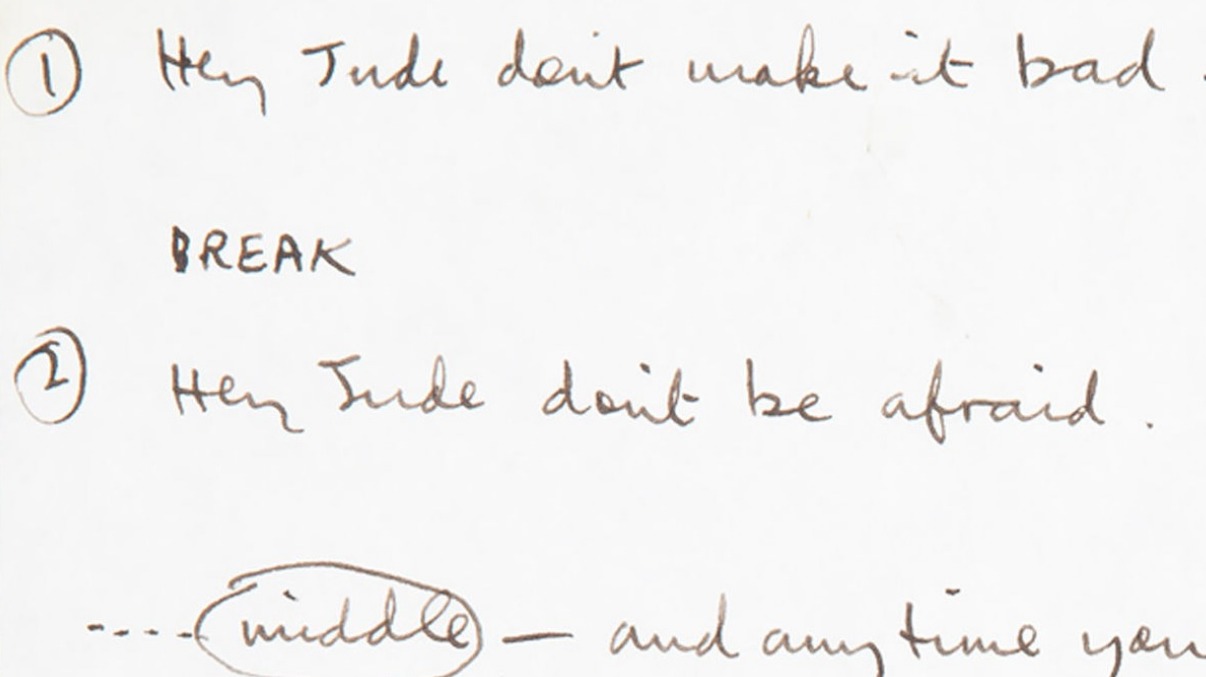 ① Hey Jude don't make it bad.
BREAK
② Hey Jude don't be afraid.
.... middle — and any time you